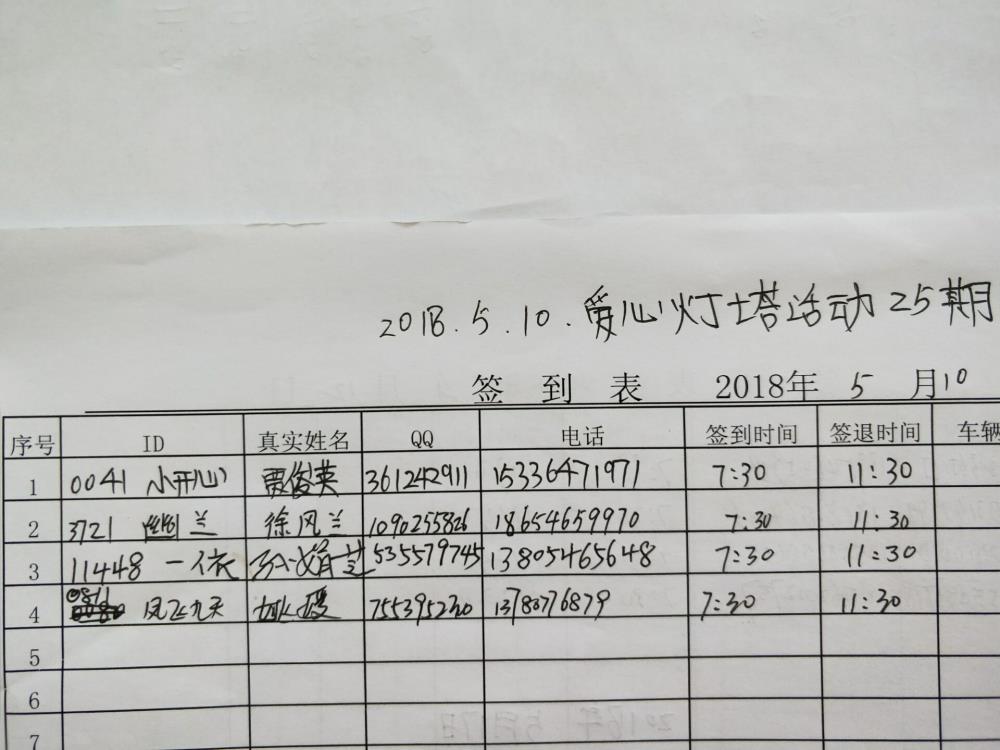 2018.5.10.爱心灯塔活动25期
签 到 表 2018年 5 月10
序号 ID 真实姓名 QQ 电话 签到时间 签退时间 车辆
1 0041 小开心 贾俊英 361242911 15336471971 7:30 11:30
2 3721 兰 徐风兰 1090255826 18654659970 7:30 11:30
3 11448 一依 孙娟芝 535579745 13805465648 7:30 11:30
4 0871 凤飞九天 姚媛 755395230 13780776879 7:30 11:30
5
6
7